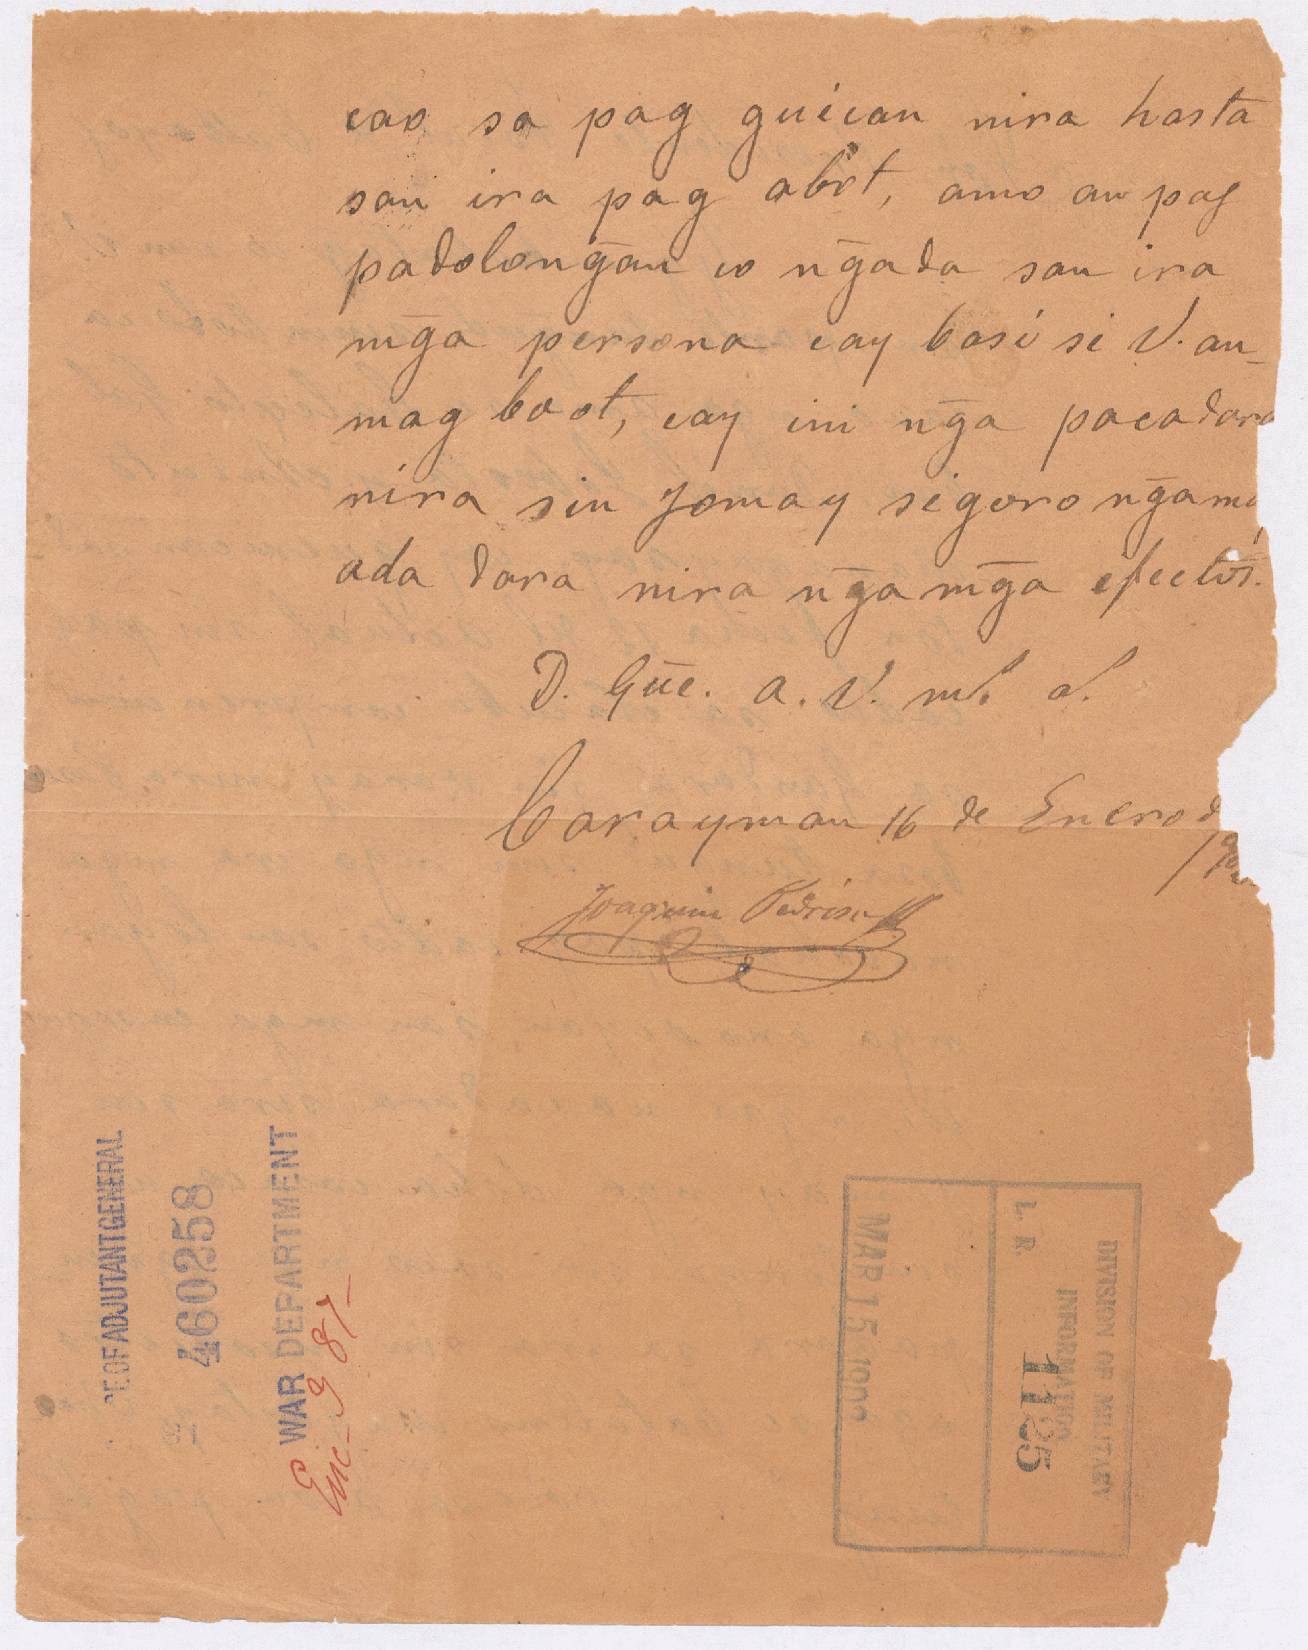 cao sa pag guican nira hasta
san ira pag abot, amo an pag
padolonḡan co nḡada san ira
mḡa persona cay basi si V. an
mag boot, cay ini nḡa pacadara
nira sin Jomay sigoro nḡa
ada dara nira nḡa mḡa efectos.
D. Gūe. a. V. m.s a.s
Carayman 16 de Enero d
Joaquin
CE OF ADJUTANT GENERAL
460258
WAR DEPARTMENT
Enc - 9 87 -
DIVISION OF MILITARY
INFORMATION
L. R. 1125
MAR 15 1902